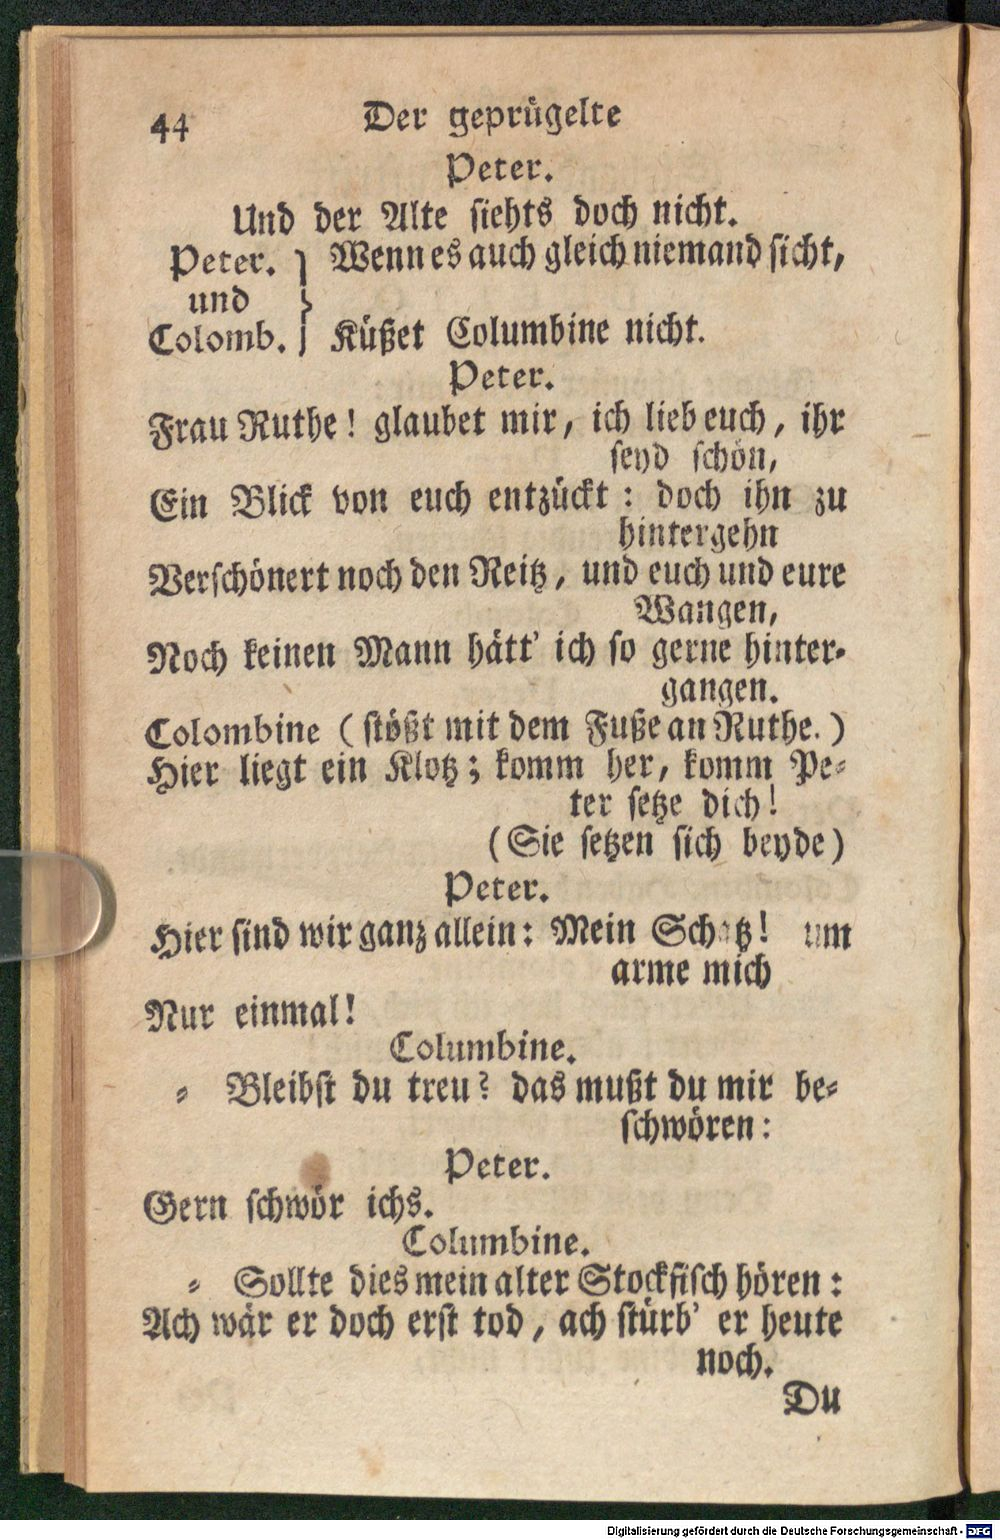 44 Der geprügelte
Peter.
Und der Alte siehts doch nicht.
Peter. } Wenn es auch gleich niemand sicht,
und
Colomb. } Küßet Columbine nicht.
Peter.
Frau Ruthe! glaubet mir, ich lieb euch, ihr
seyd schön,
Ein Blick von euch entzückt: doch ihn zu
hintergehn
Verschönert noch den Reitz, und euch und eure
Wangen,
Noch keinen Mann hätt' ich so gerne hinter-
gangen.
Colombine (stößt mit dem Fuße an Ruthe.)
Hier liegt ein Klotz; komm her, komm Pe-
ter setze dich!
(Sie setzen sich beyde)
Peter.
Hier sind wir ganz allein: Mein Schatz! um
arme mich
Nur einmal!
Columbine.
- Bleibst du treu? das mußt du mir be-
schwören:
Peter.
Gern schwör ichs.
Columbine.
- Sollte dies mein alter Stockfisch hören:
Ach wär er doch erst tod, ach stürb' er heute
noch.
Du
Digitalisierung gefördert durch die Deutsche Forschungsgemeinschaft - DFG